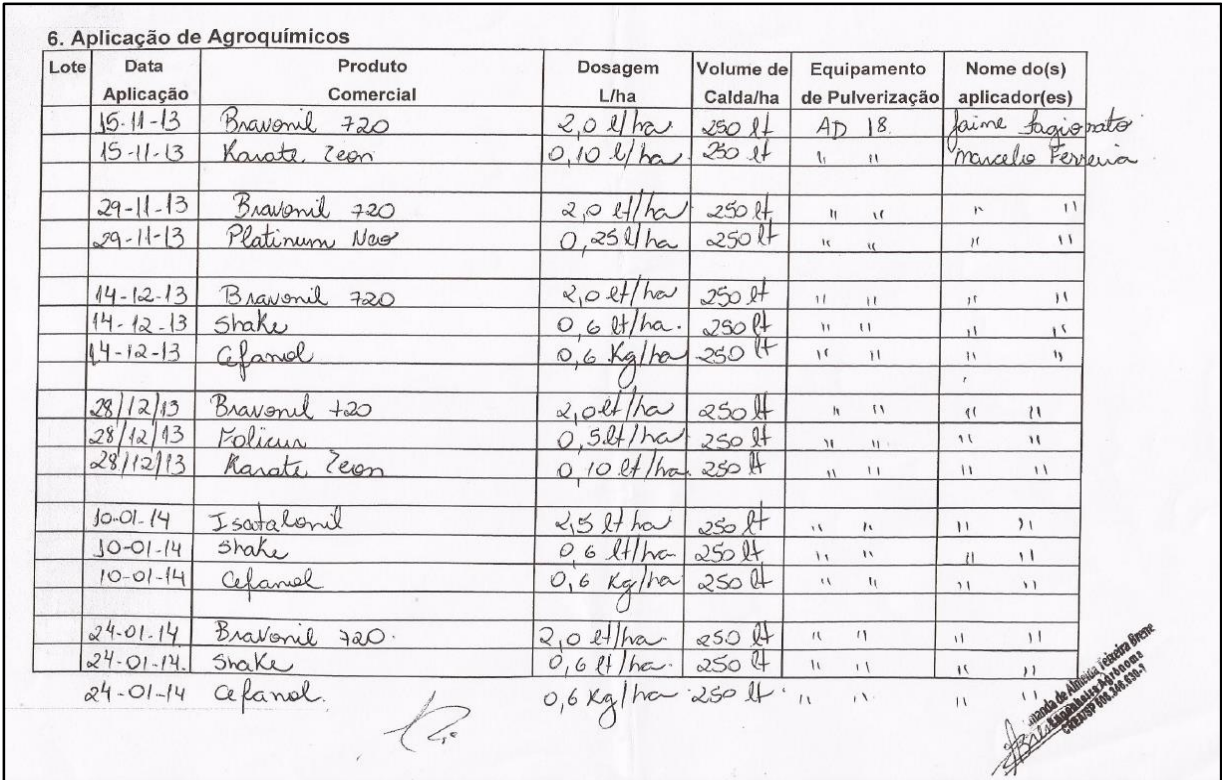 6. Aplicação de Agroquímicos
Lote Data Aplicação Produto Comercial Dosagem L/ha Volume de Calda/ha Equipamento de Pulverização Nome do(s) aplicador(es)
15-11-13 Bravonil 720 2,0 l/ha. 250 lt AD 18. Jaime
15-11-13 Karate Zeon 0,10 l/ha. 250 lt " " Marcelo Ferreira
29-11-13 Bravonil 720 2,0 lt/ha 250 lt " " " "
29-11-13 Platinum Neo 0,25 l/ha 250 lt " " " "
14-12-13 Bravonil 720 2,0 lt/ha 250 lt " " " "
14-12-13 Shake 0,6 lt/ha. 250 lt " " " "
14-12-13 Cefanol 0,6 Kg/ha 250 lt " " " "
28/12/13 Bravonil 720 2,0 lt/ha 250 lt " " " "
28/12/13 Folicur 0,5 lt/ha 250 lt " " " "
28/12/13 Karate Zeon 0,10 lt/ha. 250 lt " " " "
10-01-14 Isatalonil 2,5 lt ha 250 lt " " " "
10-01-14 Shake 0,6 lt/ha 250 lt " " " "
10-01-14 Cefanol 0,6 Kg/ha 250 lt " " " "
24-01-14 Bravonil 720. 2,0 lt/ha. 250 lt " " " "
24-01-14. Shake 0,6 lt/ha. 250 lt " " " "
24-01-14 Cefanol. 0,6 Kg/ha 250 lt. " " " "
de Almeida Teixeira Brene
Engenheira Agrônoma